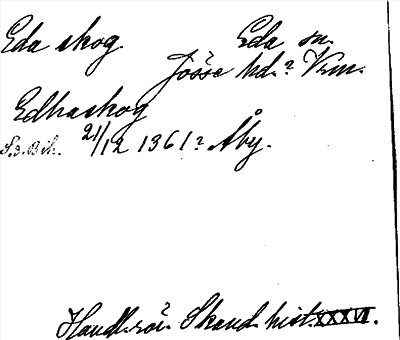 Eda skog Eda sn.
Jösse hd.? Vrm.
Edhaskog
S.d. Bih. 21/12 1361? Åby.
Handl. rör. Skand. hist. XXXVI.